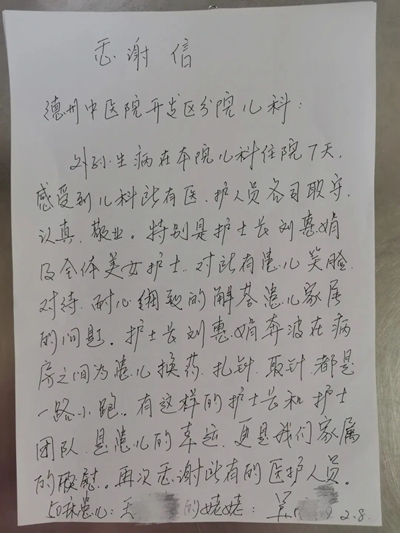 感谢信
德州中医院开发区分院儿科：
外孙生病在本院儿科住院7天，
感受到儿科所有医、护人员各司职守、
认真、敬业。特别是护士长刘惠娟
及全体美女护士、对所有患儿笑脸
对待、耐心细致的解答患儿家属
的问题。护士长刘惠娟奔波在病
房之间为患儿换药、扎针、取针、都是
一路小跑。有这样的护士长和护士
团队、是患儿的幸运、更是我们家属
的欣慰。再次感谢所有的医护人员。
患儿：王 的姥姥： 吴 2.8.